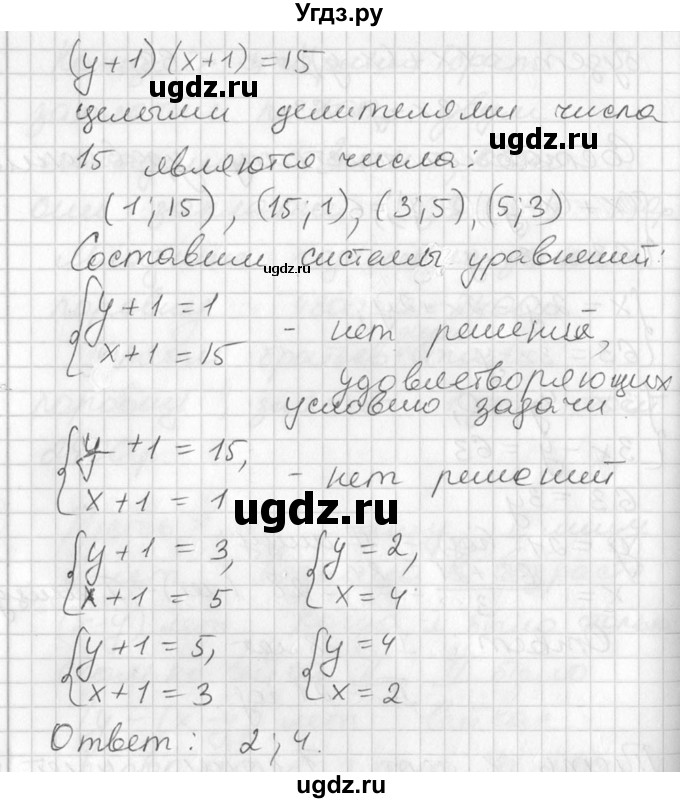 Угдз.ру
(y+1)(x+1)=15
ugdz.ru
целыми делителями числа
ugdz.ru
15 являются числа:
(1;15), (15;1), (3;5), (5;3)
Составим системы уравнений:
ugdz.ru
{y+1=1
x+1=15
- нет решений,
удовлетворяющих
условию задачи
{y+1=15,
x+1=1
- нет решений
ugdz.ru
{y+1=3,
x+1=5
{y=2,
x=4
{y+1=5,
x+1=3
{y=4
x=2
Ответ: 2;4.
ugdz.ru